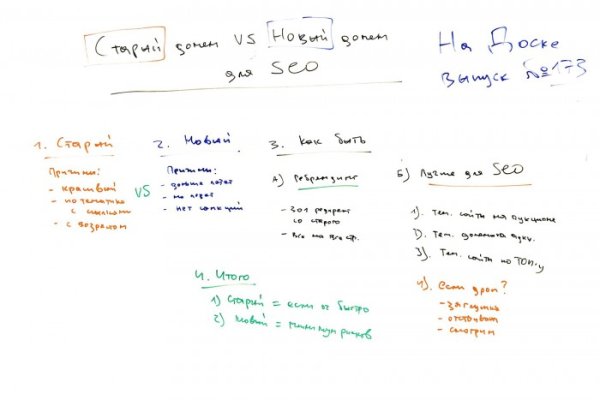 Старый домен VS Новый домен
для SEO
На Доске
выпуск №173
1. Старый
Причины:
- красивый
- по тематике
с ссылками
- с возрастом
VS
2. Новый
Причины:
- дольше
- не
- нет санкций
3. Как быть
А) Ребрендинг
- 301 редирект
со старого
- Все на все стр.
Б) Лучше для SEO
1). Тем. сайты на аукционе
2). Тем. домена аук.
3). Тем. сайты по ТОП-у
4). Если дроп?
- загнулив
- отстаиваем
- смотрим
4. Итого
1) Старый = если оч быстро
2) Новый = минимум рисков